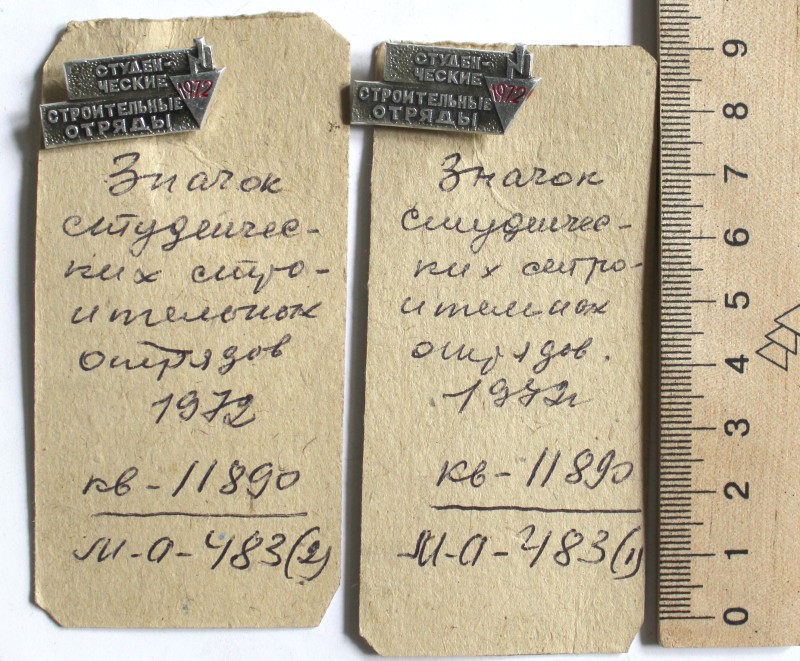 СТУДЕН-
ЧЕСКИЕ
1972
СТРОИТЕЛЬНЫЕ
ОТРЯДЫ
Значок
студенчес-
ких стро-
ительных
отрядов
1972
кв-11890
М-А-483(2)
СТУДЕН-
ЧЕСКИЕ
1972
СТРОИТЕЛЬНЫЕ
ОТРЯДЫ
Значок
студенчес-
ких стро-
ительных
отрядов.
1972г
кв-11890
М-А-483(1)
9
8
7
6
5
4
3
2
1
0